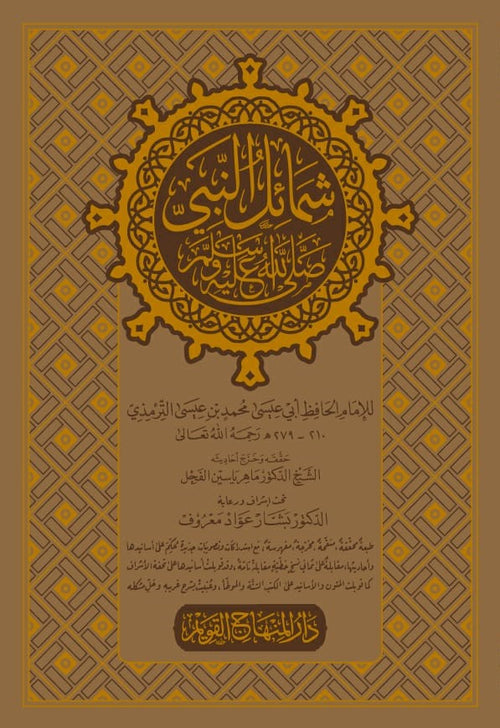 شمائل النبي
صلى الله عليه وسلم
للإمام الحافظ أبي عيسى محمد بن عيسى الترمذي
٢١٠ - ٢٧٩ هـ رحمه الله تعالى
حققه وخرج أحاديثه
الشيخ الدكتور ماهر ياسين الفحل
تحت إشراف ورعاية
الدكتور بشار عواد معروف
طبعة محققة، منقحة، مخرجة، مفهرسة، مع استدراكات وتصويبات جديدة، محكم على أسانيدها
وأحاديثها، مقابلة على ثماني نسخ خطية مقابلة تامة، وقد قوبلت أسانيدها على تحفة الأشراف
كما قوبلت المتون والأسانيد على الكتب الستة والموطأ، وعنيت بشرح غريبه وحل مشكله
دار المنهاج القويم